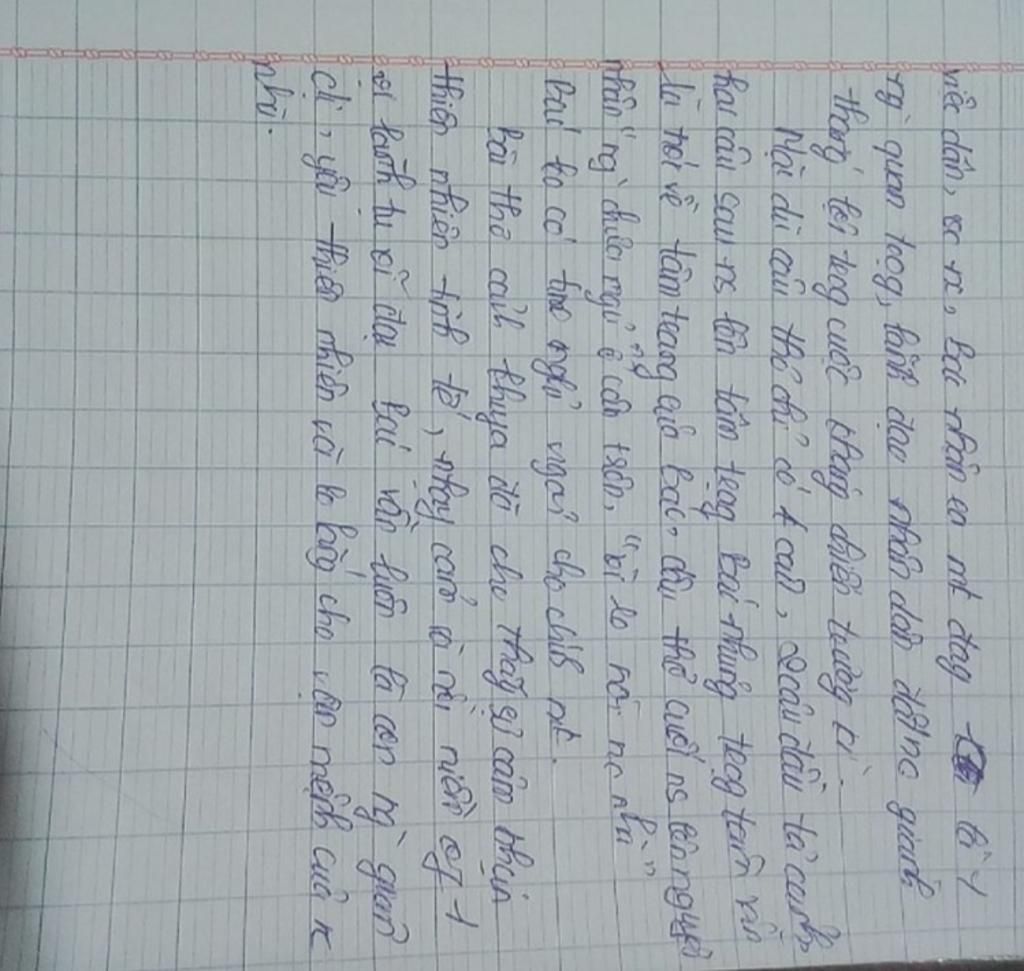 viên dân, xx rx, bác nhân ra mt đag là 1
ng' quan tọg, lãnh đạo nhân dân đất nc giành
thắng lợi trog cuộc kháng chiến trường kì.
Mặc dù câu thơ chỉ có 4 câu, 2 câu đầu tả cảnh
hai câu sau ns lên tâm trạg Bác nhưng trog tâm vẫn
là nói về tâm trạng của Bác, câu thơ cuối ns lên nguyên
nhân ng' chưa ngủ ở câu trên, "vì lo nỗi nc nhà"
Bác ko có tgo nghỉ ngơi cho chính mt.
bài thơ cảnh khuya đã cho thấy sự cảm nhận
thiên nhiên tinh tế, nhạy cảm và nỗi niềm of 1
vị lãnh tụ vĩ đại Bác vẫn luôn là con ng' giản
dị, yêu thiên nhiên và lo lắng cho vận mệnh của n
nhà.